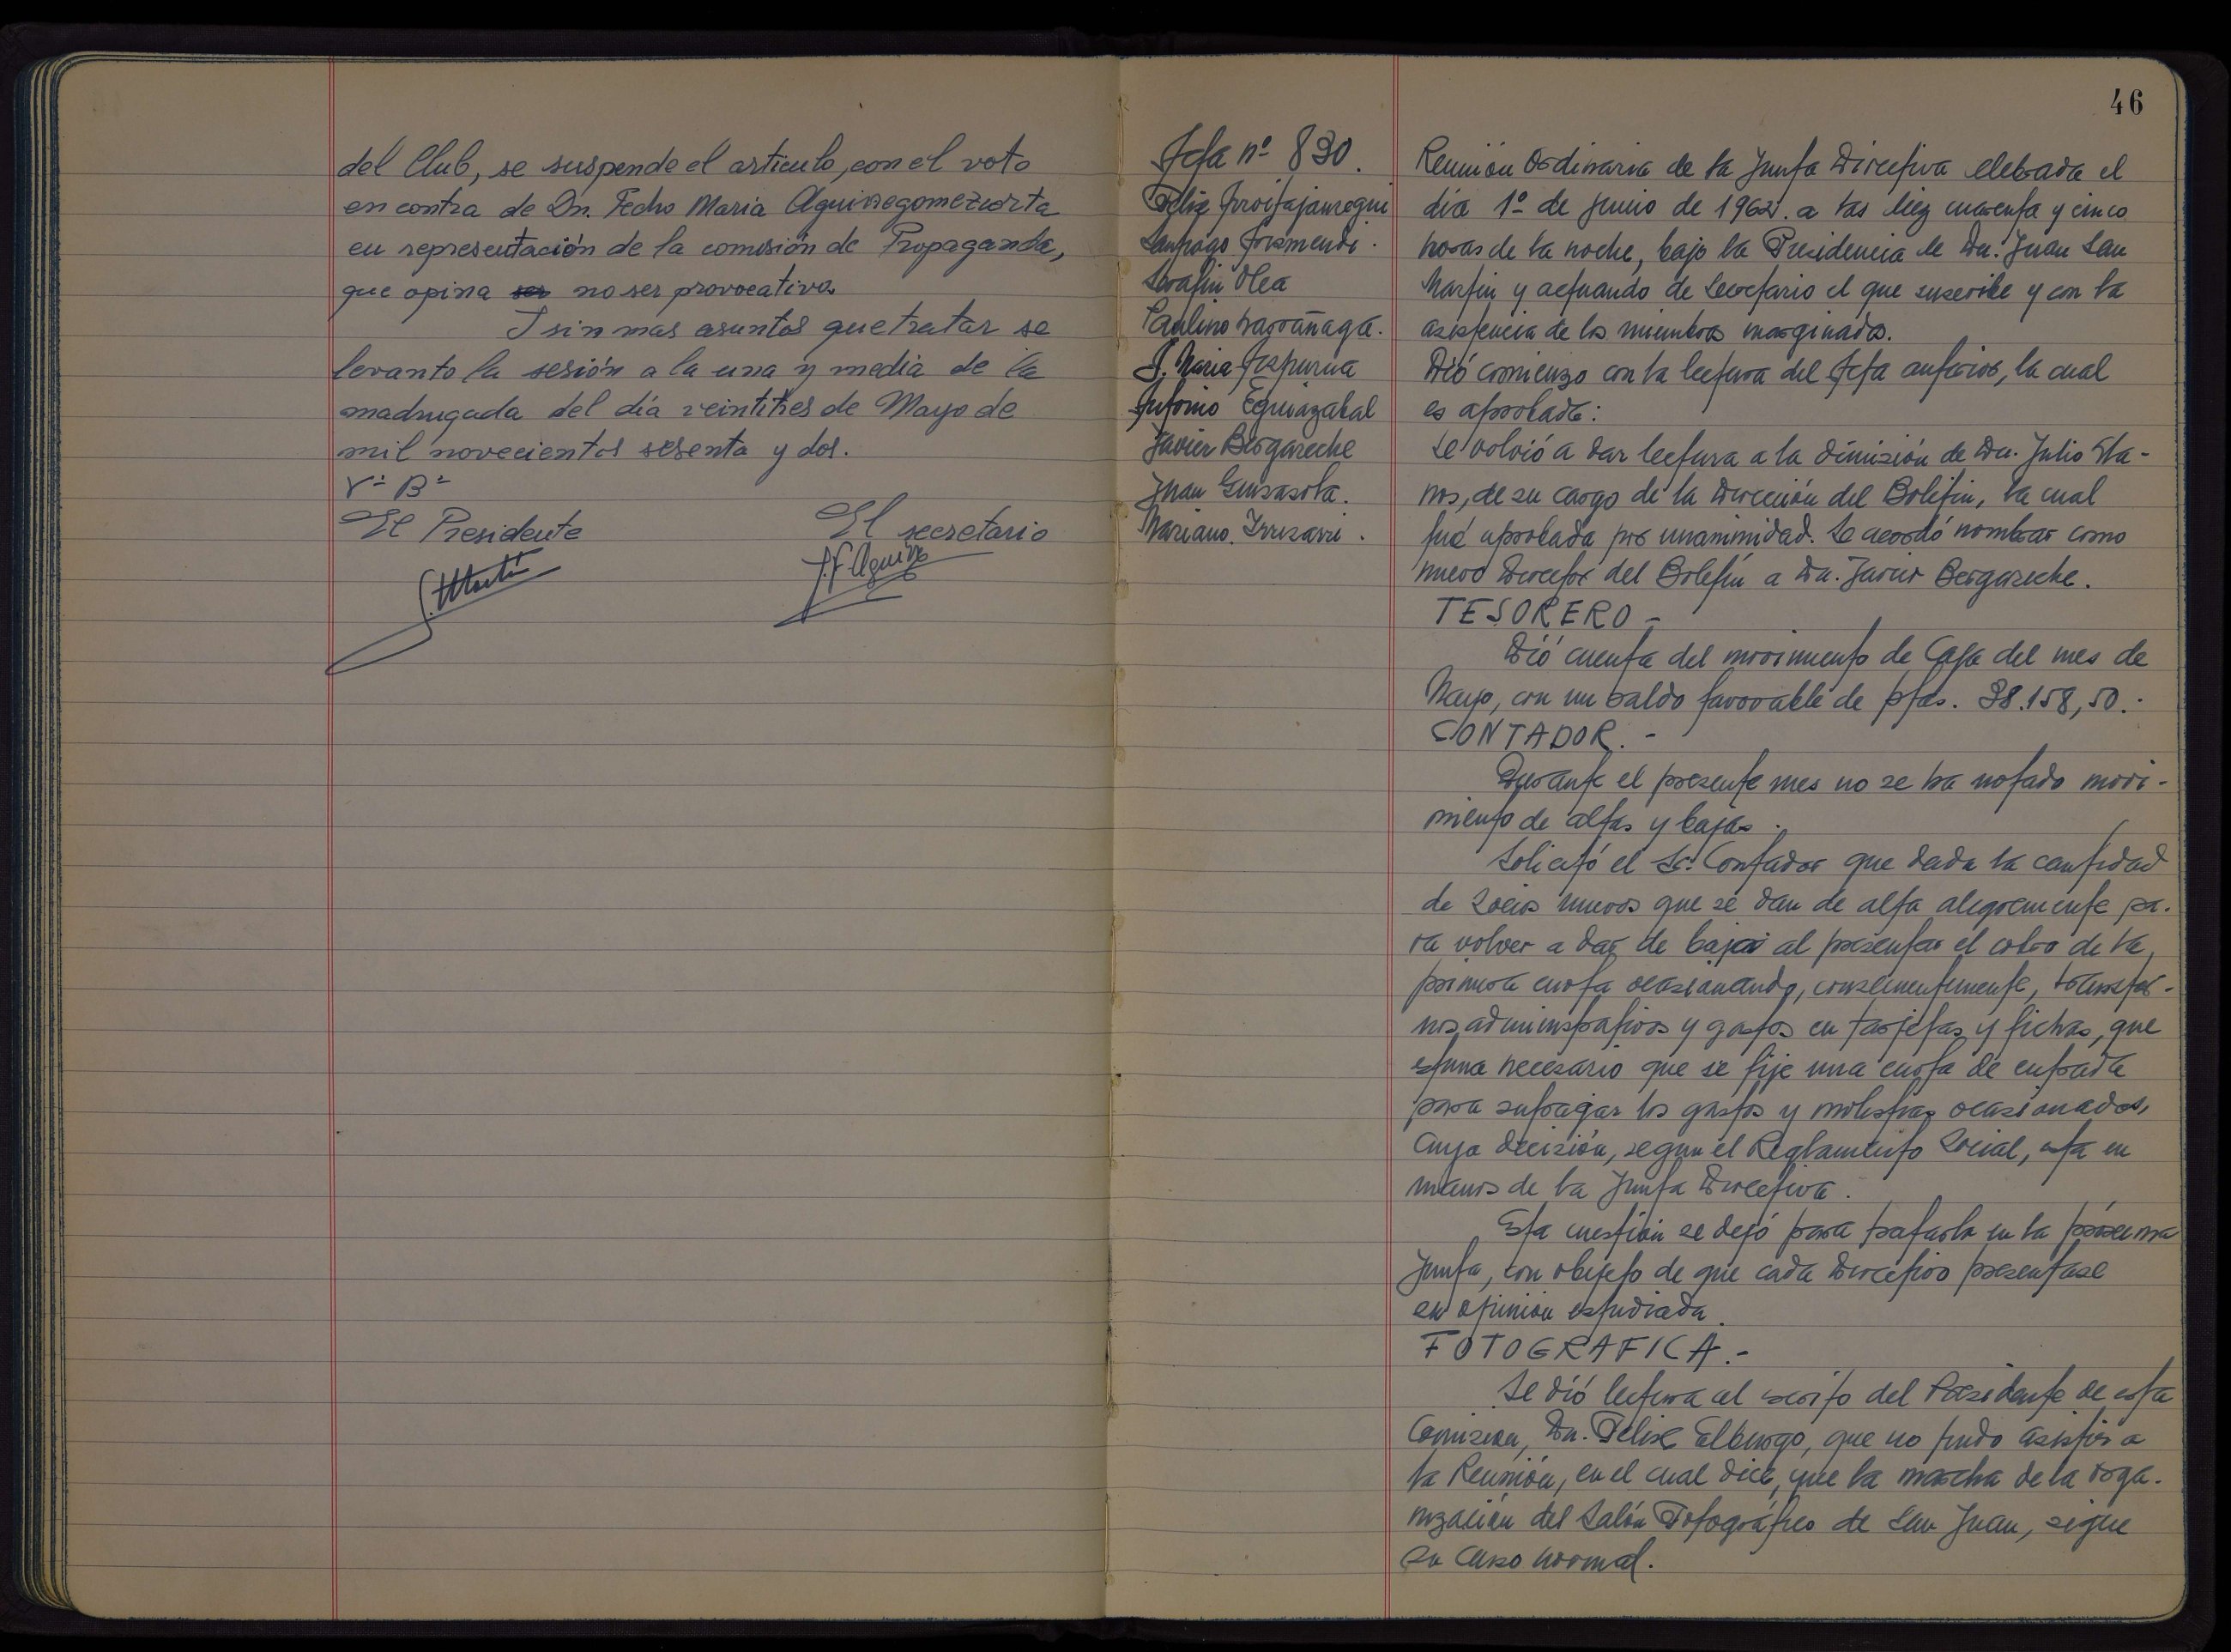 del Club, se suspende el articulo, con el voto
en contra de Dn. Pedro Maria Aguirregomezcorta
en representación de la comisión de Propaganda,
que opina no ser provocativo.
I sin mas asuntos que tratar se
levanto la sesión a la una y media de la
madrugada del día veintitres de Mayo de
mil novecientos sesenta y dos.
Vº Bº
El Presidente El secretario
46
Acta nº 830.
Felix
Santiago Arizmendi.
Serafin Olea
Paulino Larrañaga.
J. Maria Azpurua
Antonio Eguiazabal
Javier Bergareche
Juan Guisasola.
Mariano. Irusarri.
Reunión Ordinaria de la Junta Directiva elebrada el
día 1º de Junio de 1962. a las diez cuarenta y cinco
horas de la noche, bajo la Presidencia de Dn. Juan San
Martin y actuando de Secretario el que suscribe y con la
asistencia de los miembros marginados.
Dió comienzo con la lectura del Acta anterior, la cual
es aprobada:
Se volvió a dar lectura a la dimisión de Dn. Julio Lla-
nos, de su cargo de la Dirección del Boletin, la cual
fué aprobada por unanimidad. Se acordó nombrar como
nuevo Director del Boletín a Dn. Javier Bergareche.
TESORERO -
Dió cuenta del movimiento de Caja del mes de
Mayo, con un saldo favorable de ptas. 38.158,50.-
CONTADOR. -
Durante el presente mes no se ha notado movi-
miento de altas y bajas.
Solicitó el Sr. Contador que dada la cantidad
de socios nuevos que se dan de alta alegremente pa-
ra volver a dar de baja al presentar el cobro de la
primera cuota ocasionando, , trastor-
nos administrativos y gastos en tarjetas y fichas, que
estima necesario que se fije una cuota de entrada
para sufragar los gastos y molestias ocasionados,
cuya decisión, segun el Reglamento Social, esta en
manos de la Junta Directiva.
Esta cuestión se dejó para tratarla en la próxima
Junta, con objeto de que cada Directivo presentase
su opinión estudiada.
FOTOGRAFICA.-
Se dió lectura al escrito del Presidente de esta
Comisión, Dn. Felix Elburgo, que no pudo asistir a
la Reunión, en el cual dice, que la marcha de la orga-
nización del Salón Fotográfico de San Juan, sigue
su curso normal.